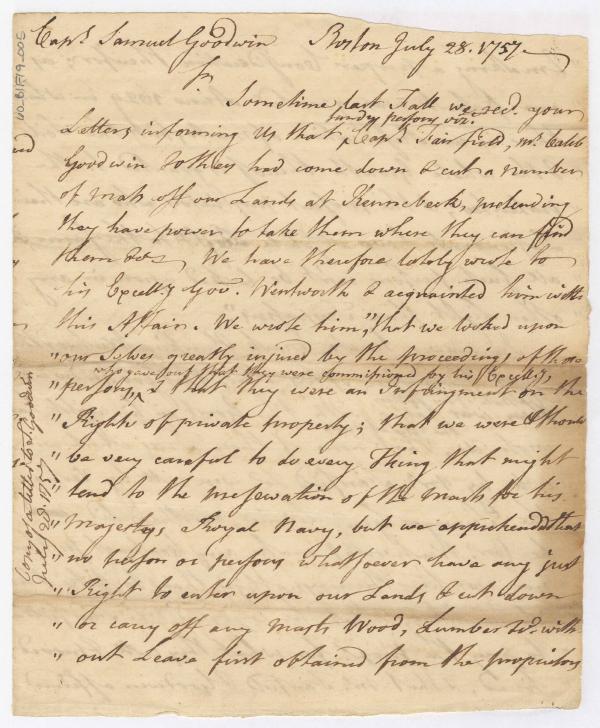 Capt. Samuel Goodwin Boston July 28. 1757.
Sr.
Sometime last Fall we recd. your
Letters informing Us that sundry persons viz. Capt. Fairfield, mr. Caleb
Goodwin & others had come down & cut a number
of masts off our Lands at Kennebeck, pretending
they have power to take them where they can find
them &c. We have therefore lately wrote to
his Excelly. Gov. Wentworth & acquainted him with
this Affair. We wrote him, "that we looked upon
" our Selves greatly injured by the proceedings of those
" persons, who gave out that they were commissioned by his Excelly., & that they were an Infringment on the
" Rights of private property; that we were & should
" be very careful to do every Thing that might
" tend to the preservation of the masts for his
" Majestys Royal Navy, but we apprehended that
" no person or persons whatsoever have any just
" Right to enter upon our Lands & cut down
" or carry off any masts Wood, Lumber &c. with
" out Leave first obtained from the proprietors
Copy of a letter to S. Goodwin
July 28. 1757